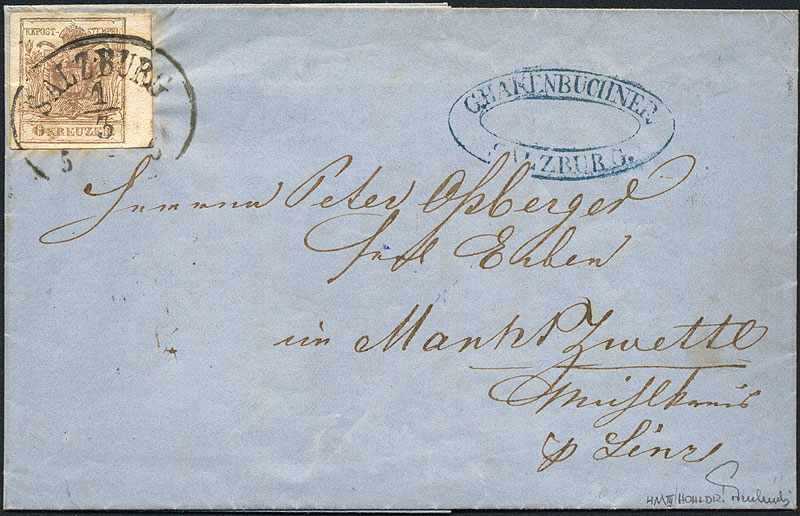 KKPOST-STEMPEL
6 KREUZER
SALZBURG
1
5
G. HAKENBUCHNER
SALZBURG.
Herrn Peter
Erben
im Markt Zwettl
Mühlkreis
p Linz
HM III / HOHLDR.